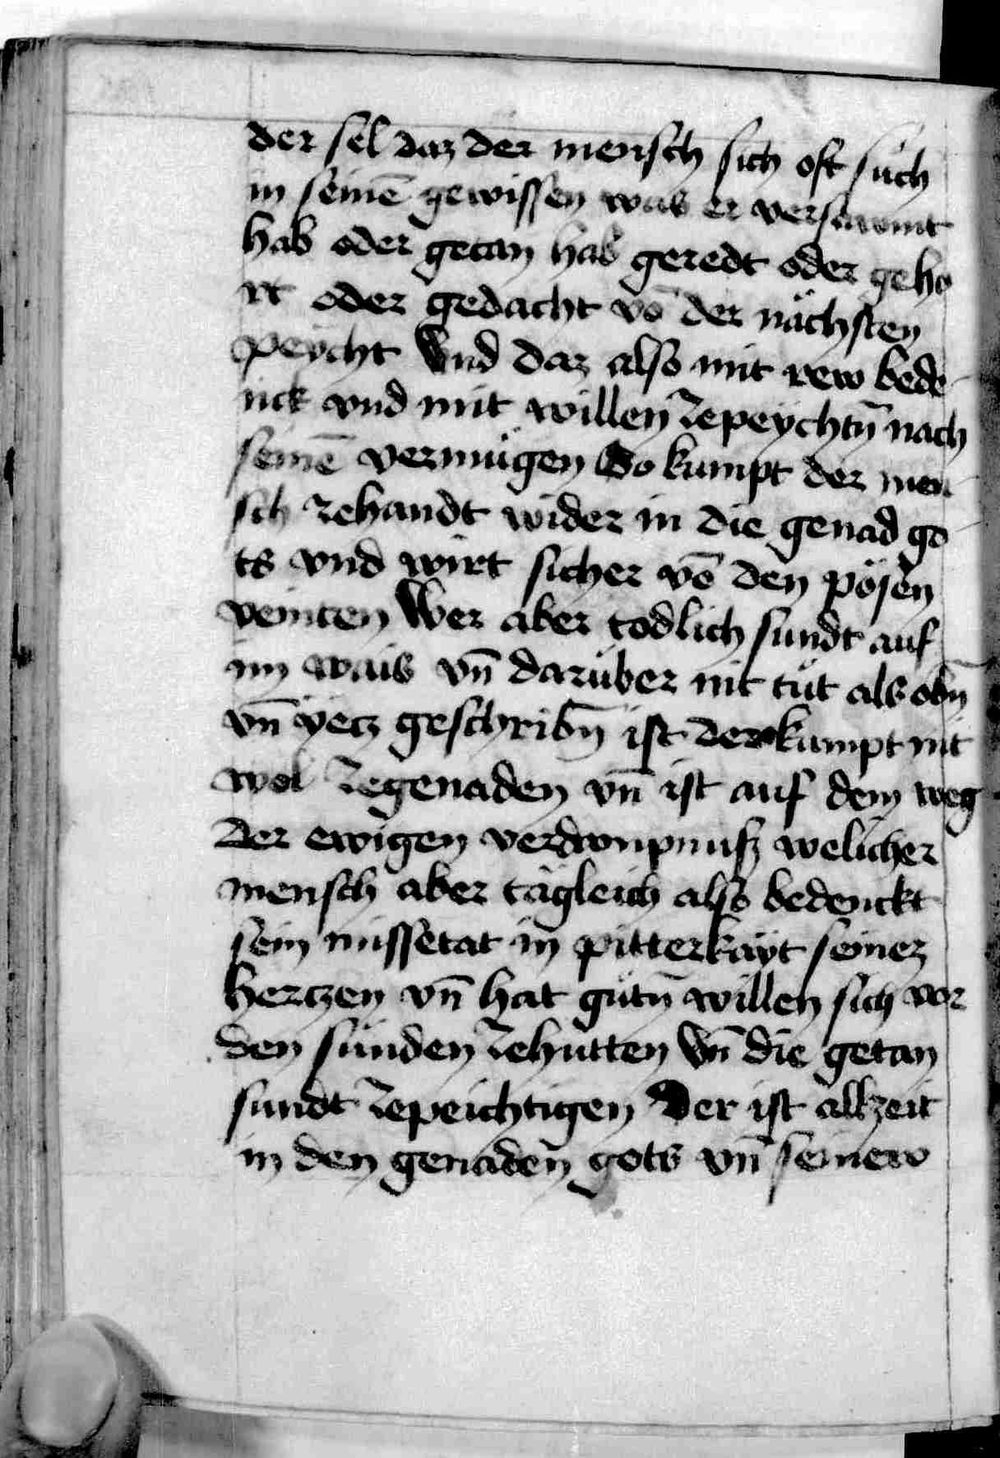 der sel daz der mensch sich oft süch
in seinē gewissen was er versawmt
hab oder getan hab geredt oder geho
rt oder gedacht vō der nächsten
peycht Vnd daz also mit rew bede
nck vnd mit willen zepeychtn̄ nach
seinē vermügen So kumpt der men
sch zehandt wider in die genad go
ts vnd wirt sicher vō den pösen
veinten Wer aber todlich sundt auf
im wais vn̄ darüber nit tüt als obn̄
vn̄ yecz geschribn̄ ist der kumpt nit
wol zegenaden vn̄ ist auf dem weg
der ewigen verdampnusz welicher
mensch aber tägleich also bedenckt
sein missetat in pitterkayt seinez
herczen vn̄ hat gütn̄ willen sich vor
den sünden zehutten Vn̄ die getan
sundt zepeichtigen Der ist allzeit
in den genaden gots vn̄ seinew